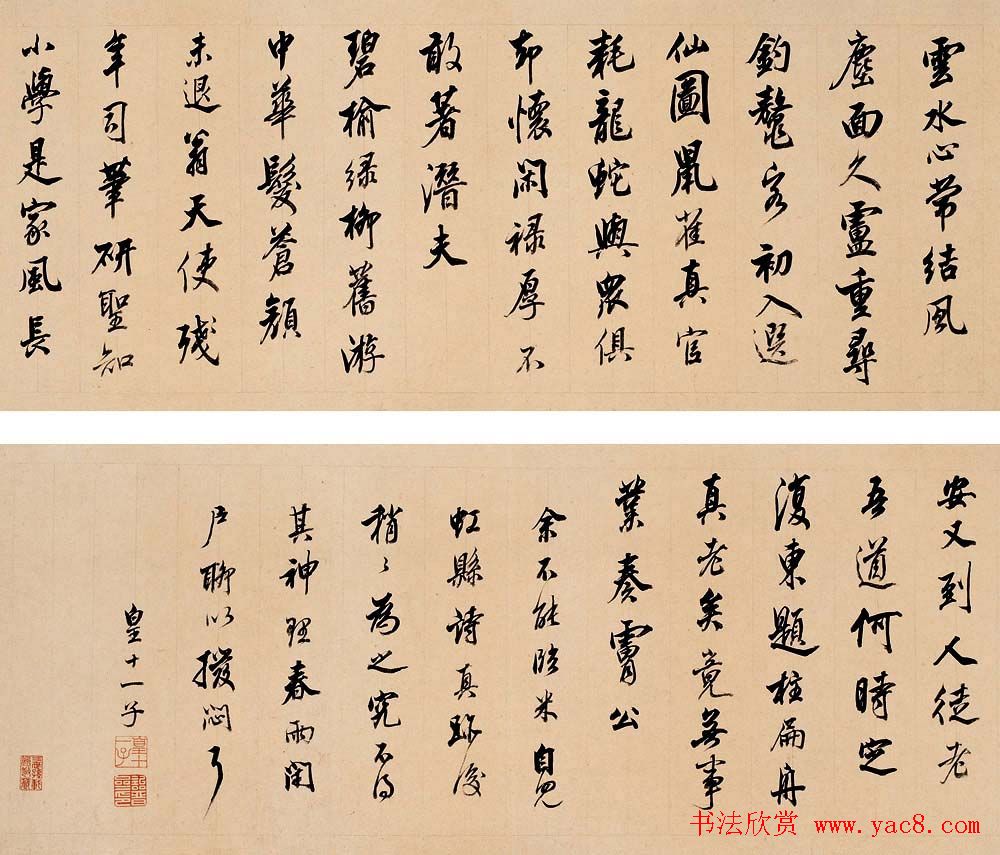 雲水心常結風
塵面久盧重尋
釣鼇客初入選
仙圖鼠雀真官
耗龍蛇與眾俱
却懷閑祿厚不
敢著潛夫
碧榆綠柳舊游
中華髮蒼顏
未退翁天使殘
年司筆研聖知
小學是家風長
安又到人徒老
吾道何時定
復東題柱扁舟
真老矣竟無事
業奏膚公
余不能臨米自見
虹縣詩真跡後
稍〻為之究不得
其神理春雨閉
戶聊以撥悶耳
皇十一子
皇十一子
詒晉齋印
书法欣赏 www.yac8.com